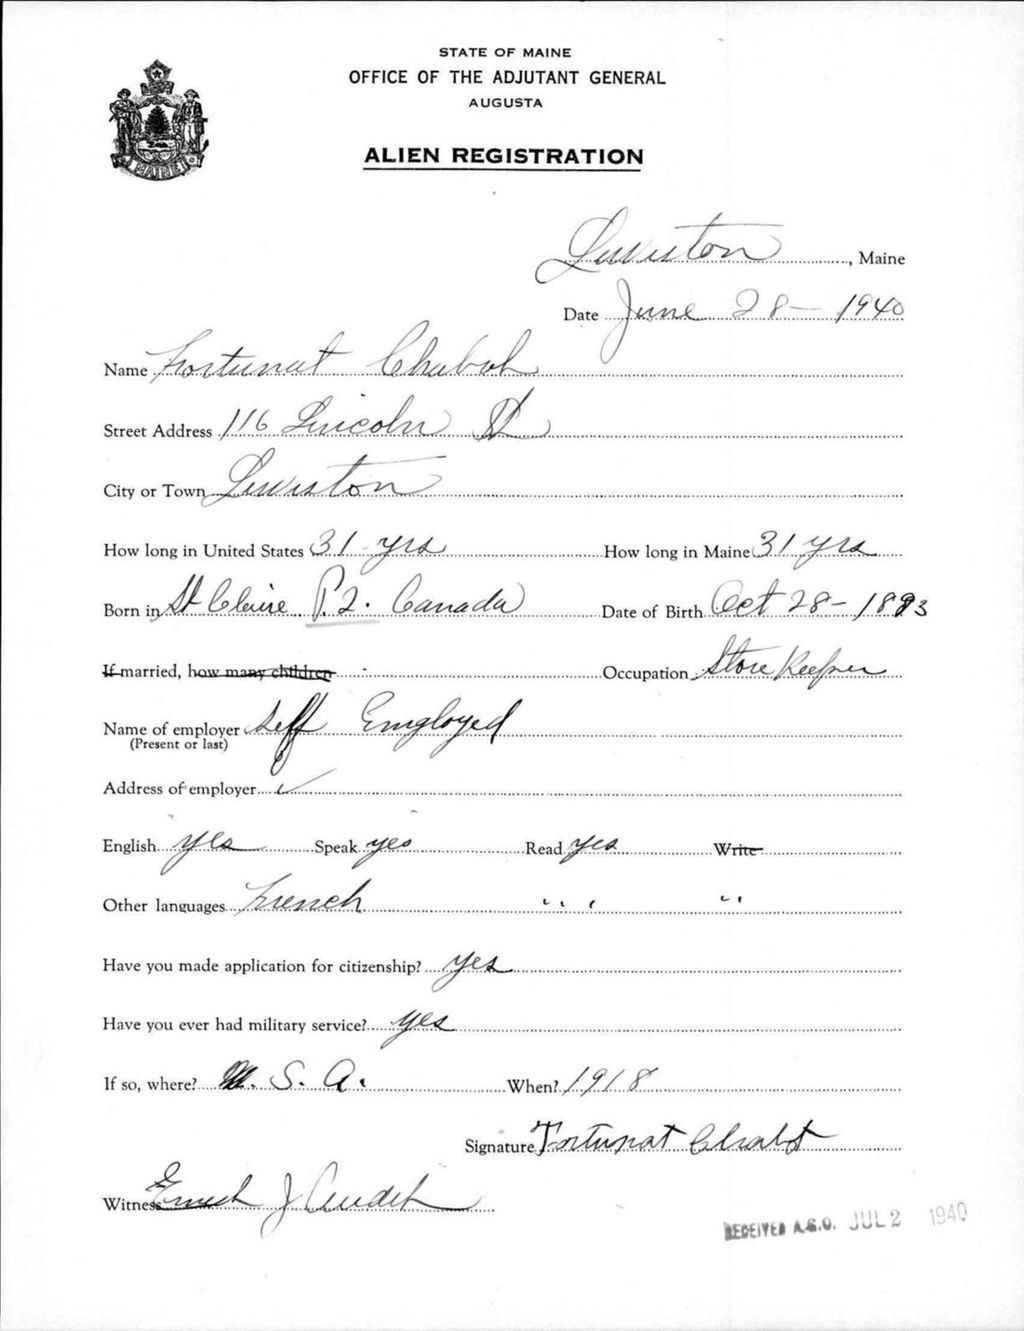 STATE OF MAINE
OFFICE OF THE ADJUTANT GENERAL
AUGUSTA
ALIEN REGISTRATION
MAINE
Lewiston, Maine
Date June 28 - 1940
Name Fortunat Chabot
Street Address 116 Lincoln St
City or Town Lewiston
How long in United States 31 yrs How long in Maine 31 yrs
Born in St Claire P.Q. Canada Date of Birth Oct 28 - 1893
If married, how many children Occupation Store Keeper
Name of employer Self Employed
(Present or last)
Address of employer
English yes Speak yes Read yes Write
Other languages French " " "
Have you made application for citizenship? yes
Have you ever had military service? yes
If so, where? U. S. A. When? 1918
Signature Fortunat Chabot
Witness J
RECEIVED A.G.O. JUL 2 1940